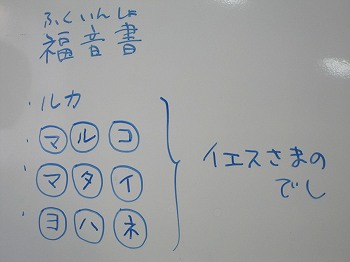 ふくいんしょ
福音書
・ルカ
・マルコ
・マタイ
・ヨハネ
イエスさまの
でし